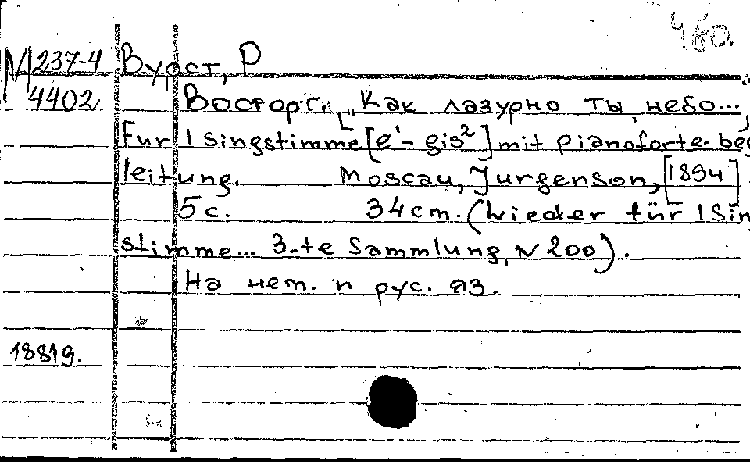 460.
М 237-4 Вурст, Р
4402 Восторг. „Как лазурно ты, небо...
Für 1 Singstimme [e'-gis²] mit pianoforte-beg
leitung. Moscau, Jurgenson, [1894]
5 с. 34 cm. (Lieder für 1 Sin
stimme... 3-te Sammlung, N 200).
На нем. и рус. яз.
18819.